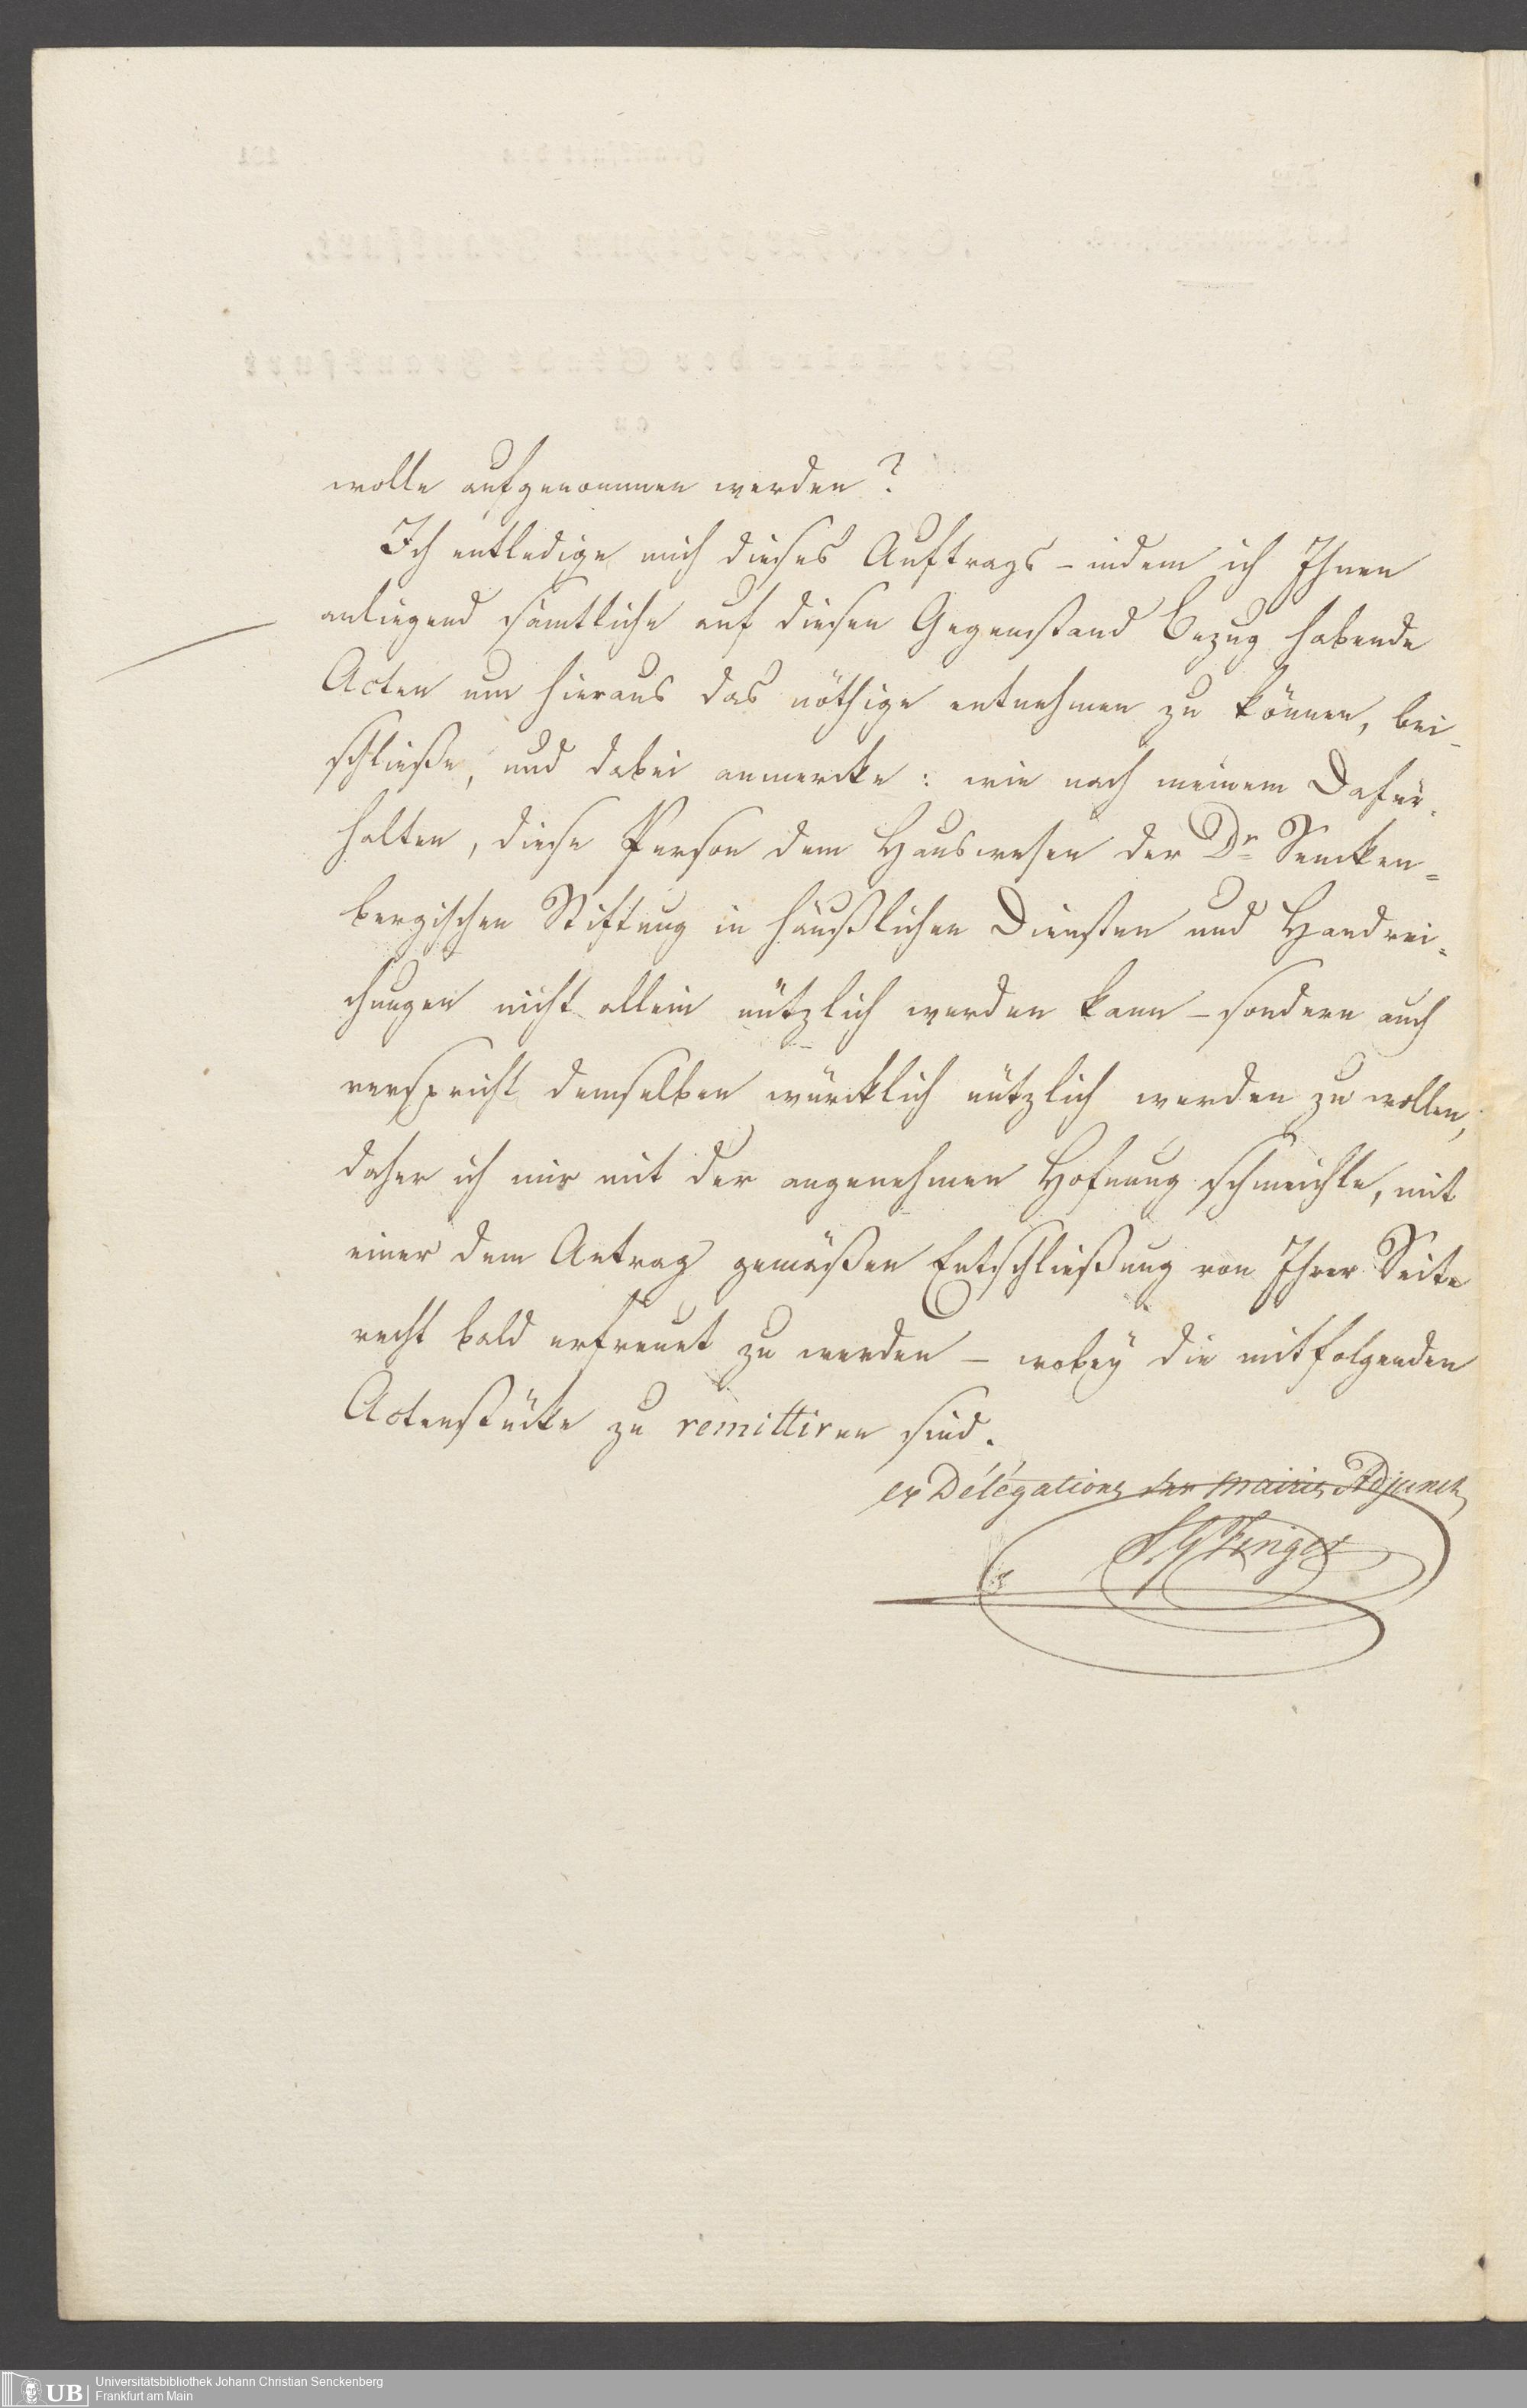 wolle aufgenommen werden?
Ich entledige mich dieses Auftrags – indem ich Ihnen
anliegend sämtliche auf diesen Gegenstand bezug habende
Acten um hieraus das nöthige entnehmen zu können, bei-
schließe, und dabei anmercke: wie nach meinem Dafür-
halten, diese Person dem Hauswesen der Dr Sencken=
bergischen Stiftung in häußlichen Diensten und Handrei=
chungen nicht allein nützlich werden kann – sondern auch
verspricht demselben würcklich nützlich werden zu wollen,
daher ich mir mit der angenehmen Hofnung schmeichle, mit
einer dem Antrag gemäßen Entschließung von Ihrer Seite
recht bald erfreuet zu werden – wobey die mitfolgenden
Actenstücke zu remittiren sind.
ex Délégatione der Mairie Adjunct
Finger
UB
Universitätsbibliothek Johann Christian Senckenberg
Frankfurt am Main